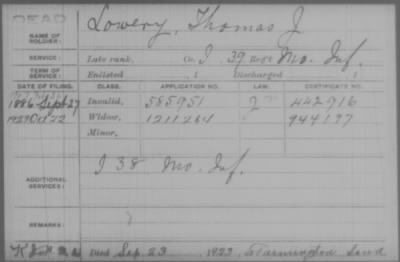 DEAD
Lowery, Thomas J
NAME OF SOLDIER:
SERVICE: Late rank, Co. I 39 Reg't Mo. Inf.
TERM OF SERVICE: Enlisted , 1 Discharged , 1
DATE OF FILING. CLASS. APPLICATION NO. LAW. CERTIFICATE NO.
1886 Sept 27 Invalid, 585951 442916
Widow, 1211264 944197
Minor,
I 38 Mo. Inf.
ADDITIONAL SERVICES:
REMARKS:
Died Sep. 23, 1923, Farmington